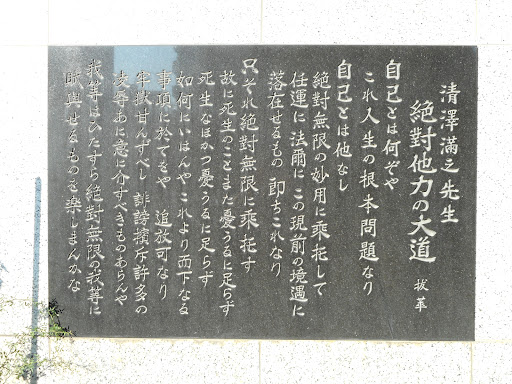 清澤滿之先生
絶對他力の大道 抜萃
自己とは何ぞや
これ人生の根本問題なり
自己とは他なし
絶對無限の妙用に乘托して
任運に法爾に この現前の境遇に
落在せるもの 即ちこれなり
只それ絶對無限に乘托す
故に死生のことまた憂うるに足らず
死生なほかつ憂うるに足らず
如何にいはんや これより而下なる
事項に於てをや 追放可なり
牢獄甘んずべし 誹謗擯斥許多の
凌辱あに意に介すべきものあらんや
我等はひたすら絶對無限の我等に
賦與せるものを樂しまんかな